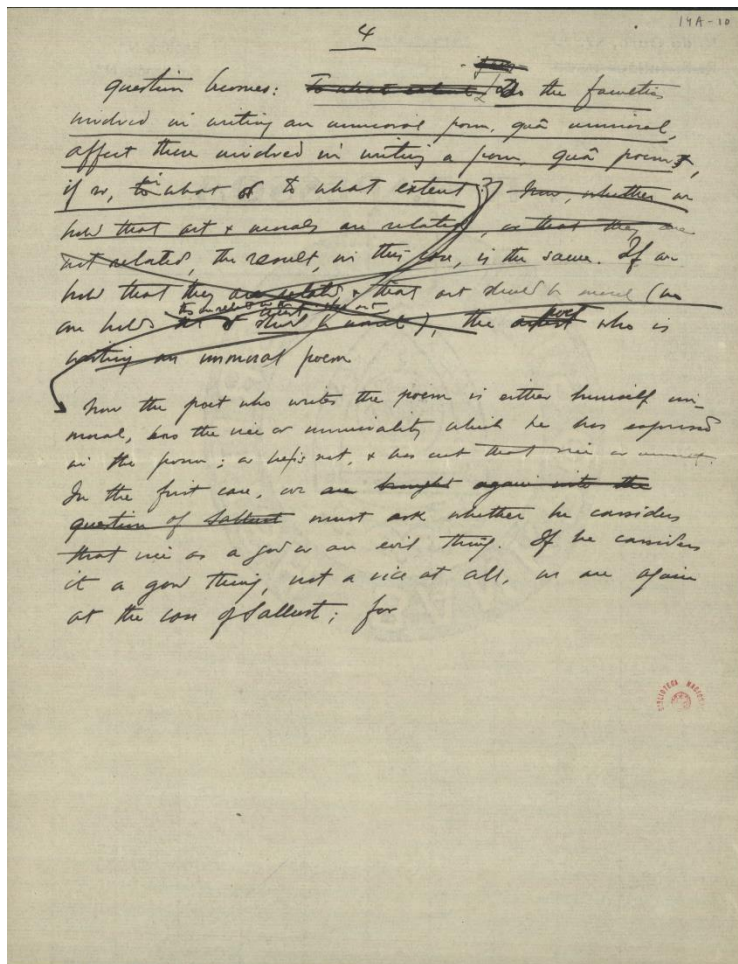 14A-10
4
question becomes: To what extent Do the faculties
involved in writing an immoral poem, quâ immoral,
affect those involved in writing a poem, quâ poem,
if so, to what or to what extent? Now, whether we
hold that art & morals are related, or that they are
not related, the result, in this case, is the same. If we
hold that they are related & that art should be moral (no
one holds should be immoral), the artist poet who is
writing an immoral poem
Now the poet who writes the poem is either himself im-
moral, has the vice or immorality which he has expressed
in the poem; or he is not, & has not that vice or
In the first case, we are brought again into the
question of Sallust must ask whether he considers
that vice as a good or an evil thing. If he considers
it a good thing, not a vice at all, we are again
at the case of Sallust; for
BIBLIOTECA NACIONAL